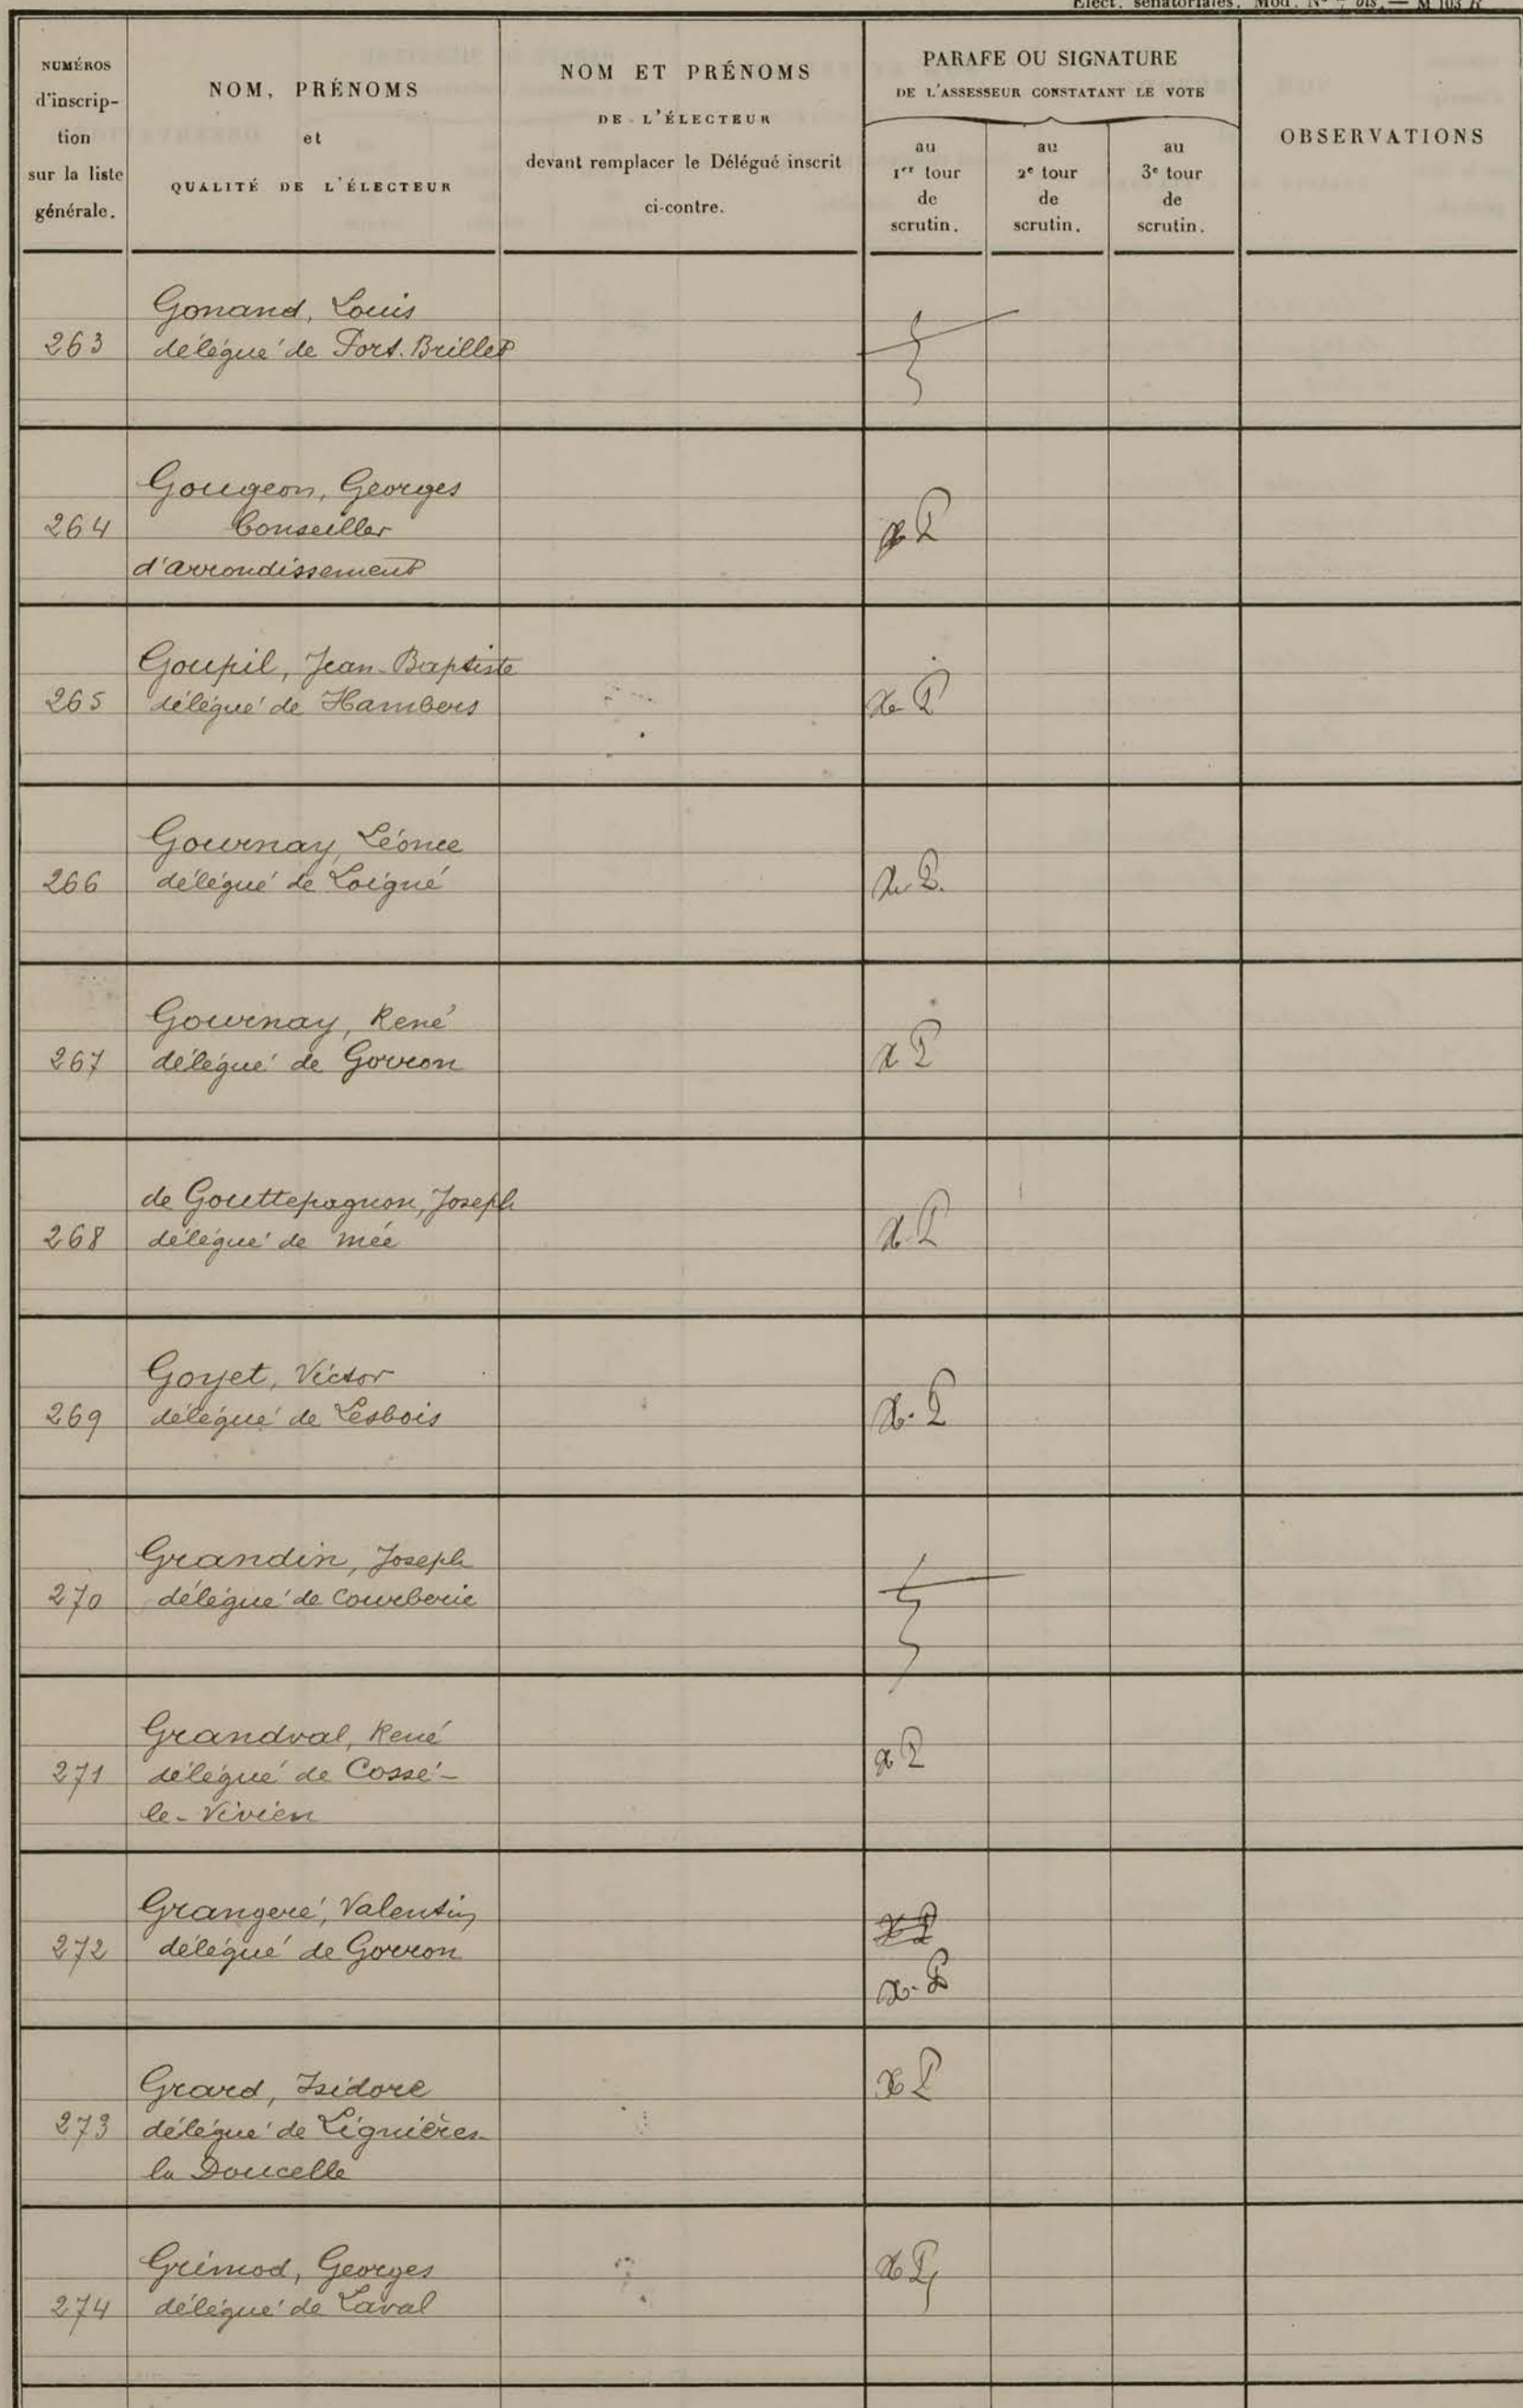 Elect. sénatoriales. Mod. N° 7 bis. — M 103 R
NUMÉROS
d'inscrip-
tion
sur la liste
générale.
NOM, PRÉNOMS
et
QUALITÉ DE L'ÉLECTEUR
NOM ET PRÉNOMS
DE L'ÉLECTEUR
devant remplacer le Délégué inscrit
ci-contre.
PARAFE OU SIGNATURE
DE L'ASSESSEUR CONSTATANT LE VOTE
au
1er tour
de
scrutin.
au
2e tour
de
scrutin.
au
3e tour
de
scrutin.
OBSERVATIONS
Gonand, Louis
263 délégué de Port-Brillet
Gougeon, Georges
264 Conseiller
d'arrondissement
Goupil, Jean-Baptiste
265 délégué de Hambers
Gournay, Léonce
266 délégué de Loigné
Gournay, René
267 délégué de Gorron
de Gouttepagnon, Joseph
268 délégué de Mée
Goyet, Victor
269 délégué de Lesbois
Grandin, Joseph
270 délégué de Courberie
Grandval, René
271 délégué de Cossé-
le-Vivien
Grangeré, Valentin
272 délégué de Gorron
Grard, Isidore
273 délégué de Lignières-
la Doucelle
Grimod, Georges
274 délégué de Laval